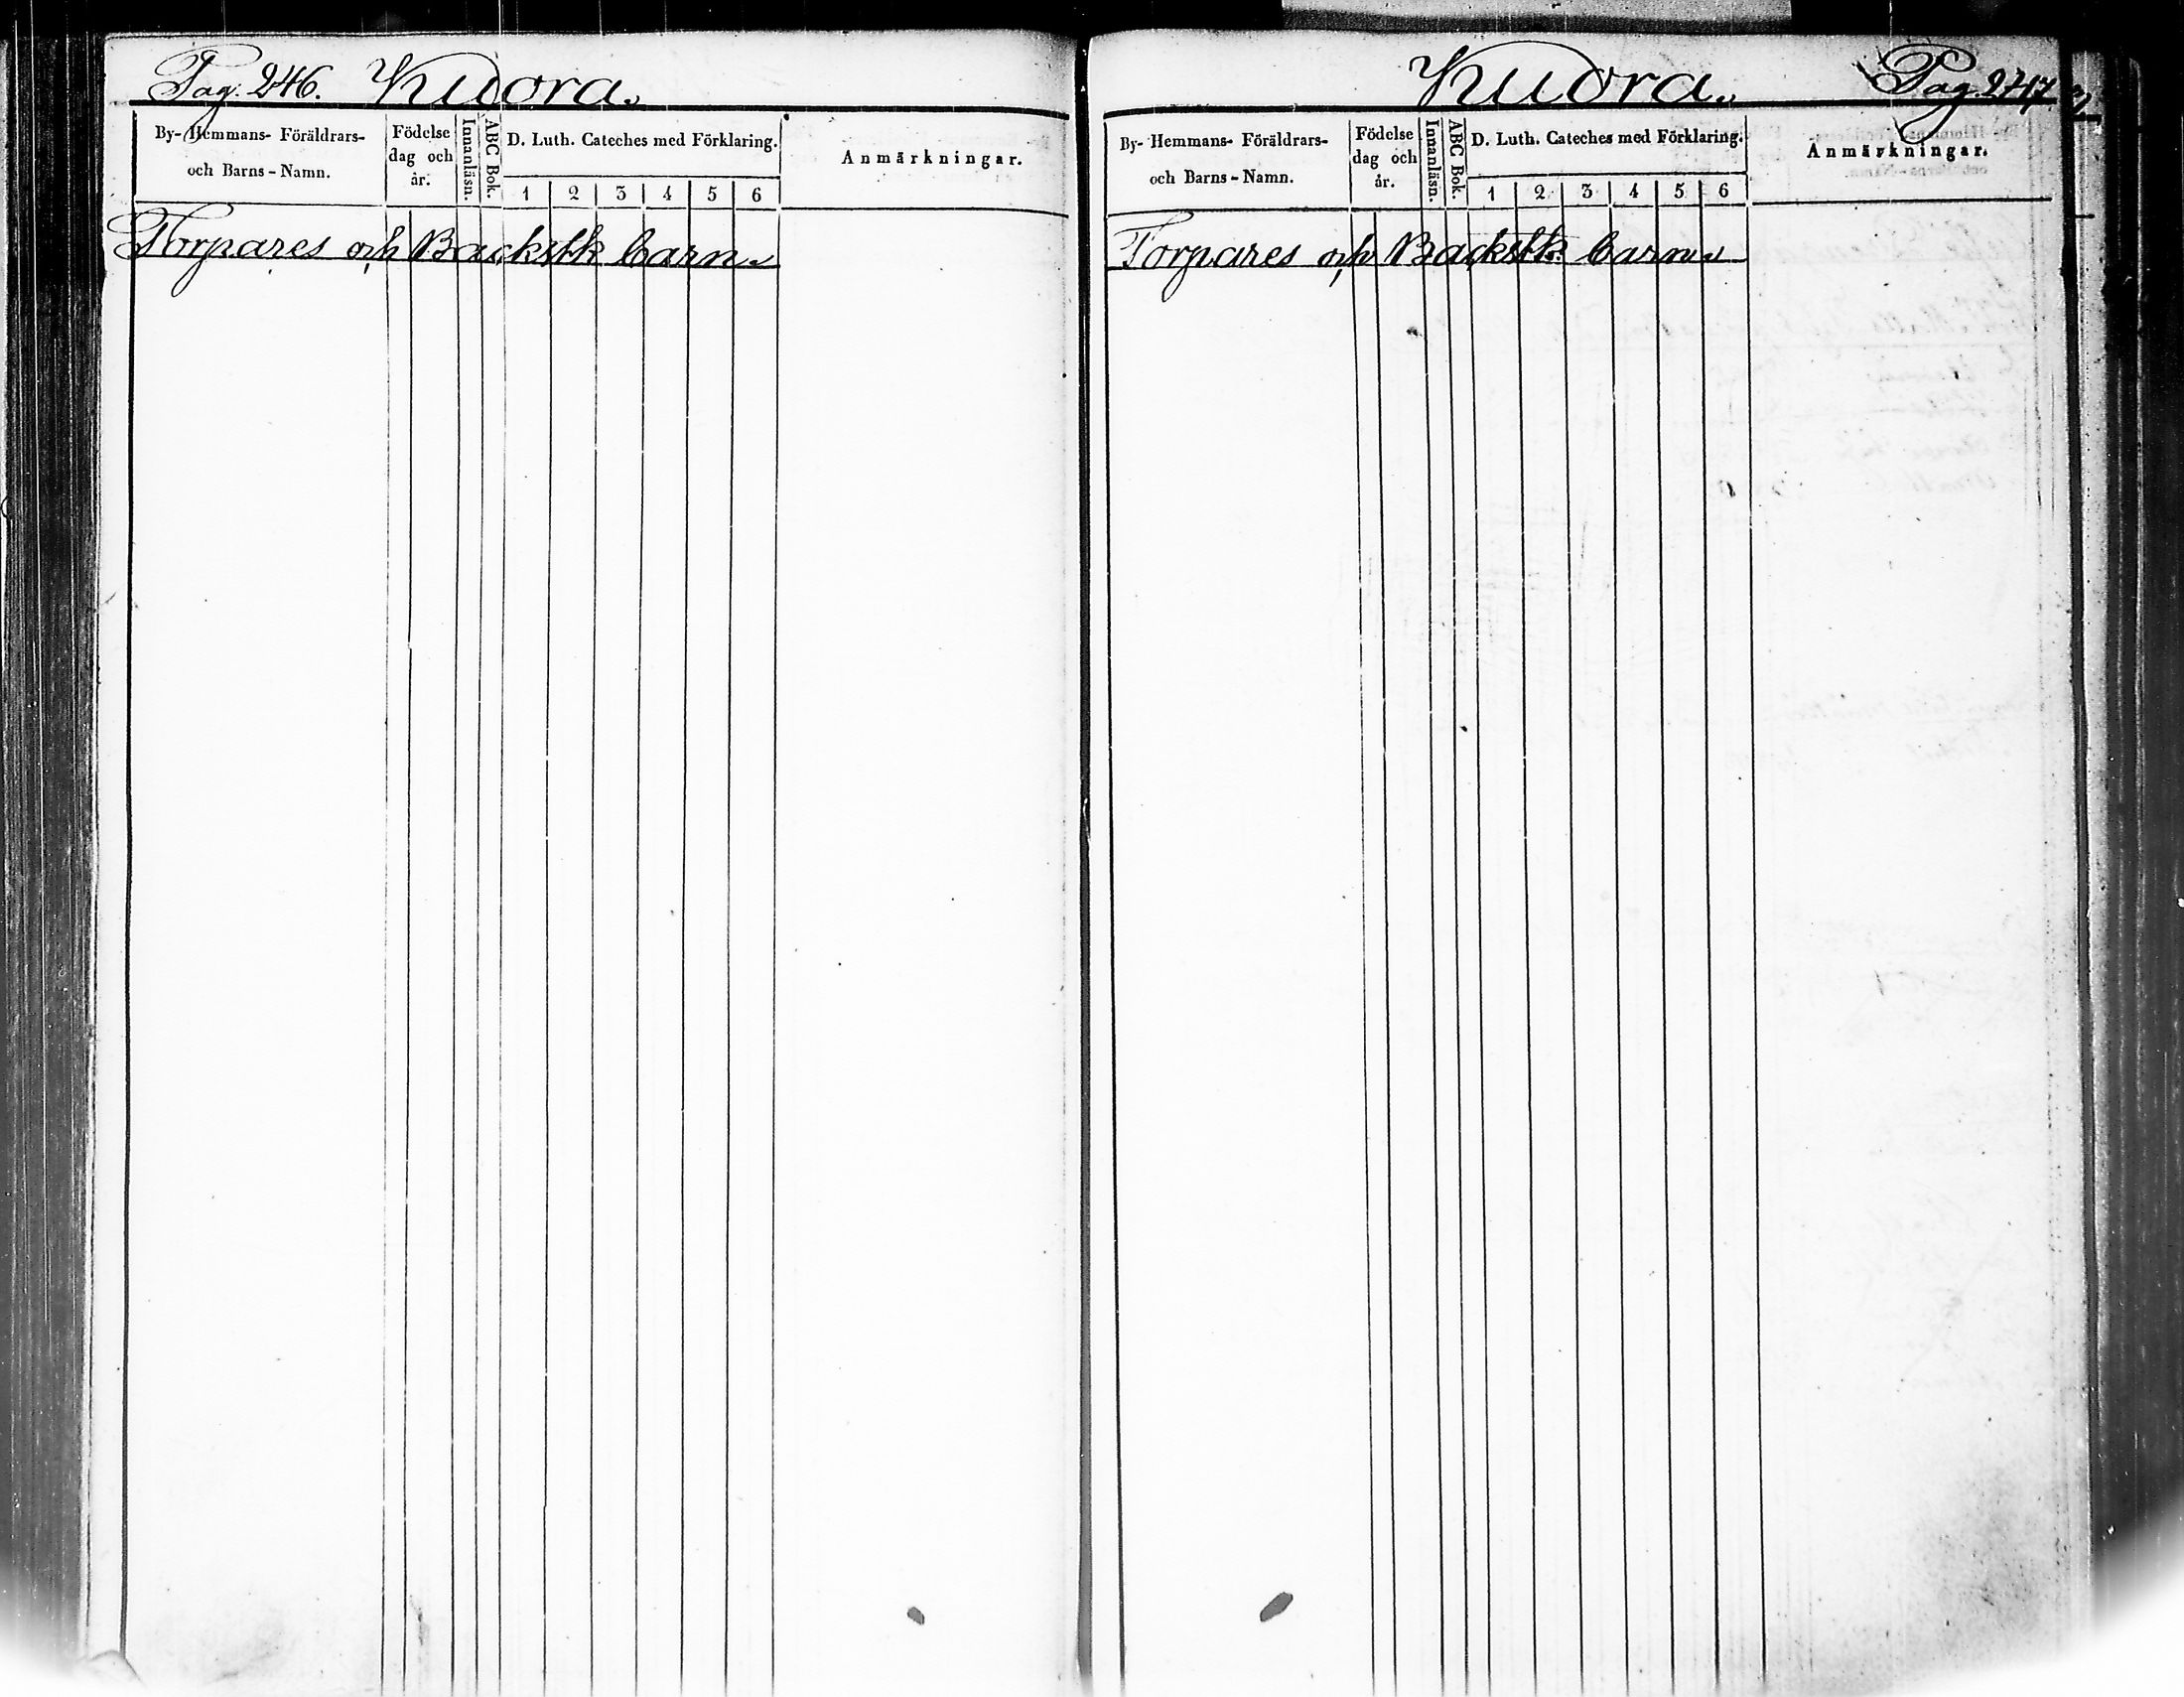 Pag. 246. Kudora.
By- Hemmans- Föräldrars-
och Barns-Namn.
Födelse
dag och
år.
Innanläsn.
ABC Bok.
D. Luth. Cateches med Förklaring.
1 2 3 4 5 6
Anmärkningar.
Torpares och Backstk barn.
Kudora. Pag. 247
By- Hemmans- Föräldrars-
och Barns-Namn.
Födelse
dag och
år.
Innanläsn.
ABC Bok.
D. Luth. Cateches med Förklaring.
1 2 3 4 5 6
Anmärkningar.
Torpares och Backstk. barn.